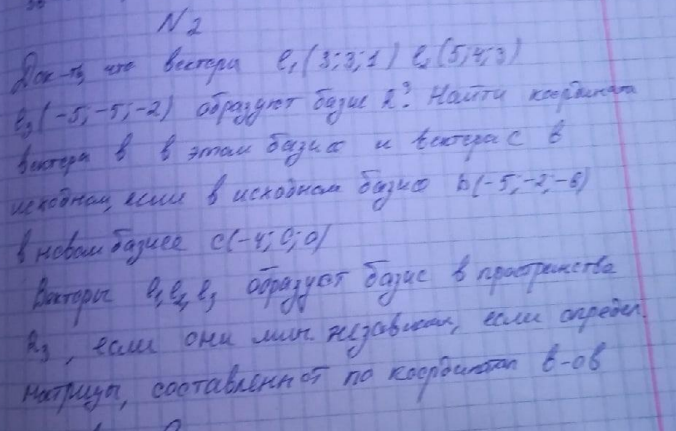 N 2
Док-ть, что вектора e₁(3;3;1) e₂(5;4;3)
e₃(-5;-5;-2) образуют базис R³. Найти координата
вектора в в этом базисе и вектора С в
исходном, если в исходном базисе b(-5;-2;-6)
в новом базисе С(-4;0;0)
Векторы e₁e₂e₃ образуют базис в пространства
R₃, если они лин. независим, если определ.
матрицы, составленной по координатам в-ов